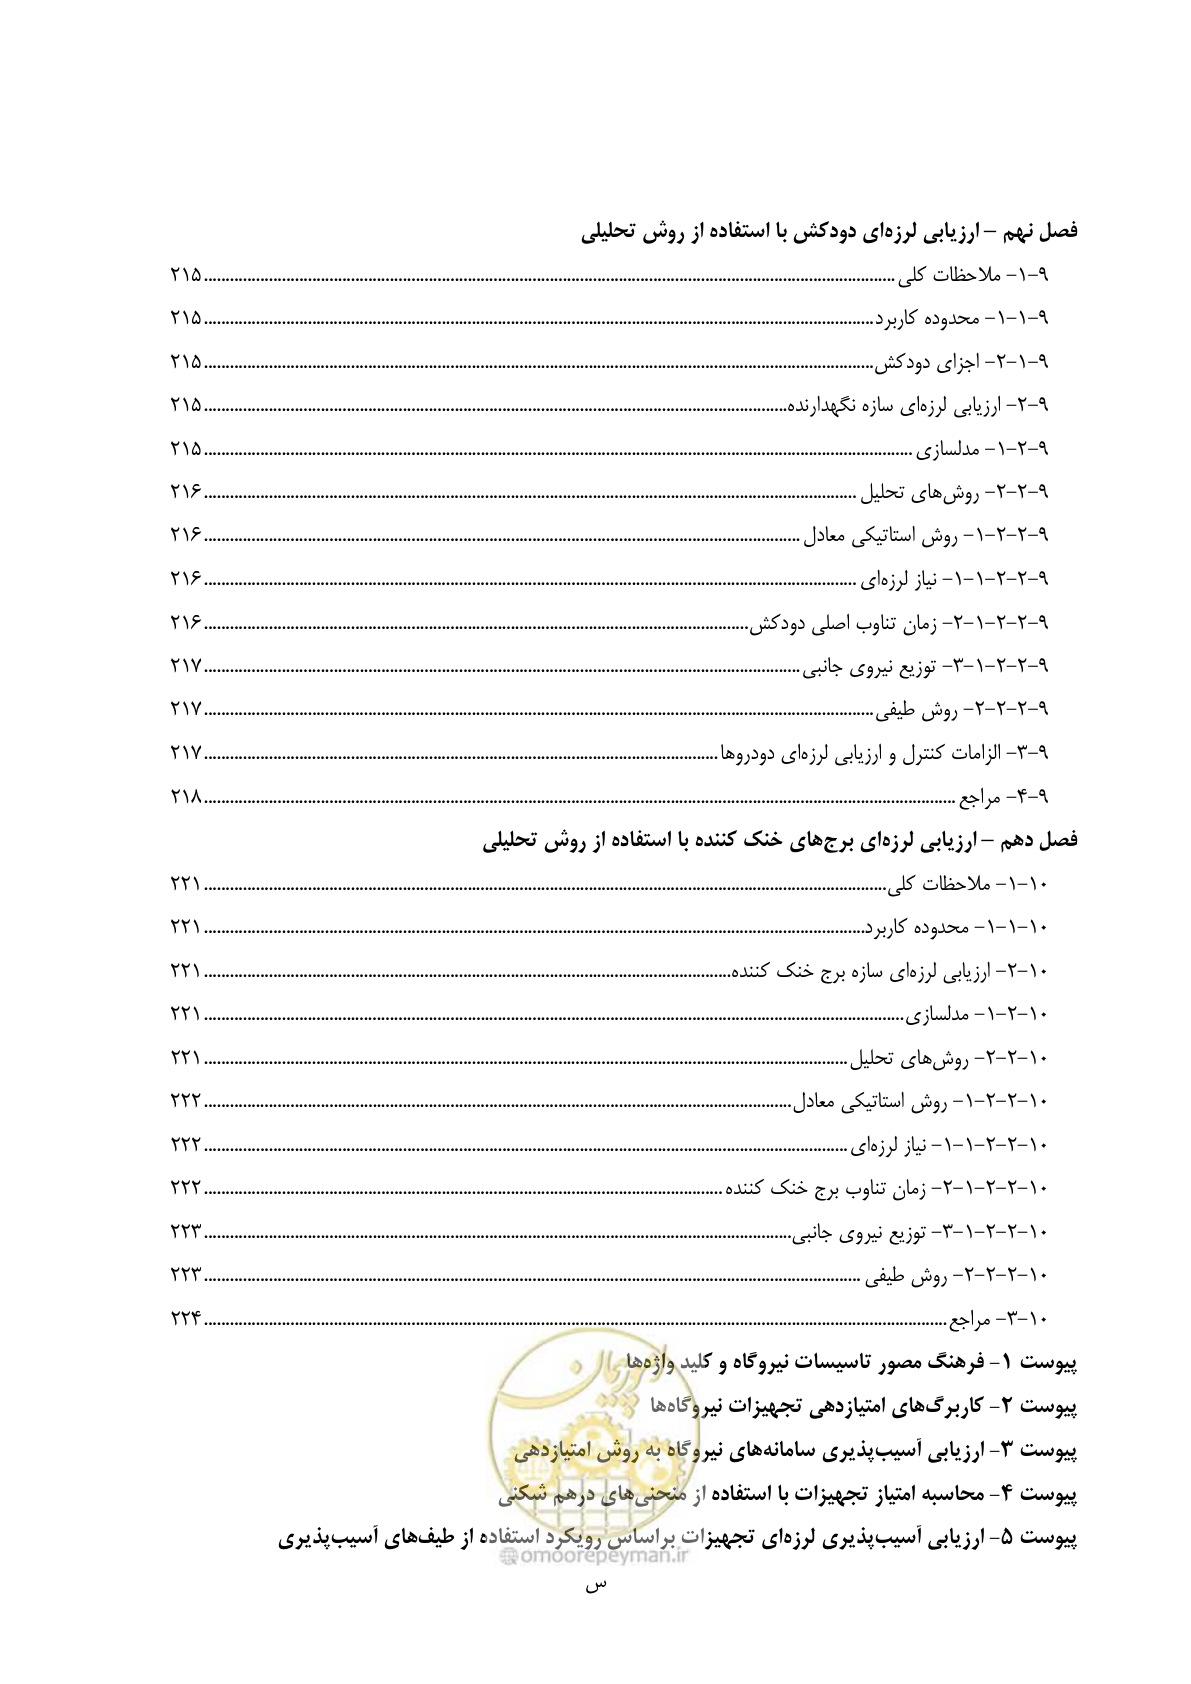 فصل نهم – ارزیابی لرزه‌ای دودکش با استفاده از روش تحلیلی
۹-۱- ملاحظات کلی ............ ۲۱۵
۹-۱-۱- محدوده کاربرد ............ ۲۱۵
۹-۱-۲- اجزای دودکش ............ ۲۱۵
۹-۲- ارزیابی لرزه‌ای سازه نگهدارنده ............ ۲۱۵
۹-۲-۱- مدلسازی ............ ۲۱۵
۹-۲-۲- روش‌های تحلیل ............ ۲۱۶
۹-۲-۲-۱- روش استاتیکی معادل ............ ۲۱۶
۹-۲-۲-۱-۱- نیاز لرزه‌ای ............ ۲۱۶
۹-۲-۲-۱-۲- زمان تناوب اصلی دودکش ............ ۲۱۶
۹-۲-۲-۱-۳- توزیع نیروی جانبی ............ ۲۱۷
۹-۲-۲-۲- روش طیفی ............ ۲۱۷
۹-۳- الزامات کنترل و ارزیابی لرزه‌ای دودروها ............ ۲۱۷
۹-۴- مراجع ............ ۲۱۸
فصل دهم – ارزیابی لرزه‌ای برج‌های خنک کننده با استفاده از روش تحلیلی
۱۰-۱- ملاحظات کلی ............ ۲۲۱
۱۰-۱-۱- محدوده کاربرد ............ ۲۲۱
۱۰-۲- ارزیابی لرزه‌ای سازه برج خنک کننده ............ ۲۲۱
۱۰-۲-۱- مدلسازی ............ ۲۲۱
۱۰-۲-۲- روش‌های تحلیل ............ ۲۲۱
۱۰-۲-۲-۱- روش استاتیکی معادل ............ ۲۲۲
۱۰-۲-۲-۱-۱- نیاز لرزه‌ای ............ ۲۲۲
۱۰-۲-۲-۱-۲- زمان تناوب برج خنک کننده ............ ۲۲۲
۱۰-۲-۲-۱-۳- توزیع نیروی جانبی ............ ۲۲۳
۱۰-۲-۲-۲- روش طیفی ............ ۲۲۳
۱۰-۳- مراجع ............ ۲۲۴
پیوست ۱- فرهنگ مصور تاسیسات نیروگاه و کلید واژه‌ها
پیوست ۲- کاربرگ‌های امتیازدهی تجهیزات نیروگاه‌ها
پیوست ۳- ارزیابی آسیب‌پذیری سامانه‌های نیروگاه به روش امتیازدهی
پیوست ۴- محاسبه امتیاز تجهیزات با استفاده از منحنی‌های درهم شکنی
پیوست ۵- ارزیابی آسیب‌پذیری لرزه‌ای تجهیزات براساس رویکرد استفاده از طیف‌های آسیب‌پذیری
امور پیمان
@omoorepeyman.ir
س